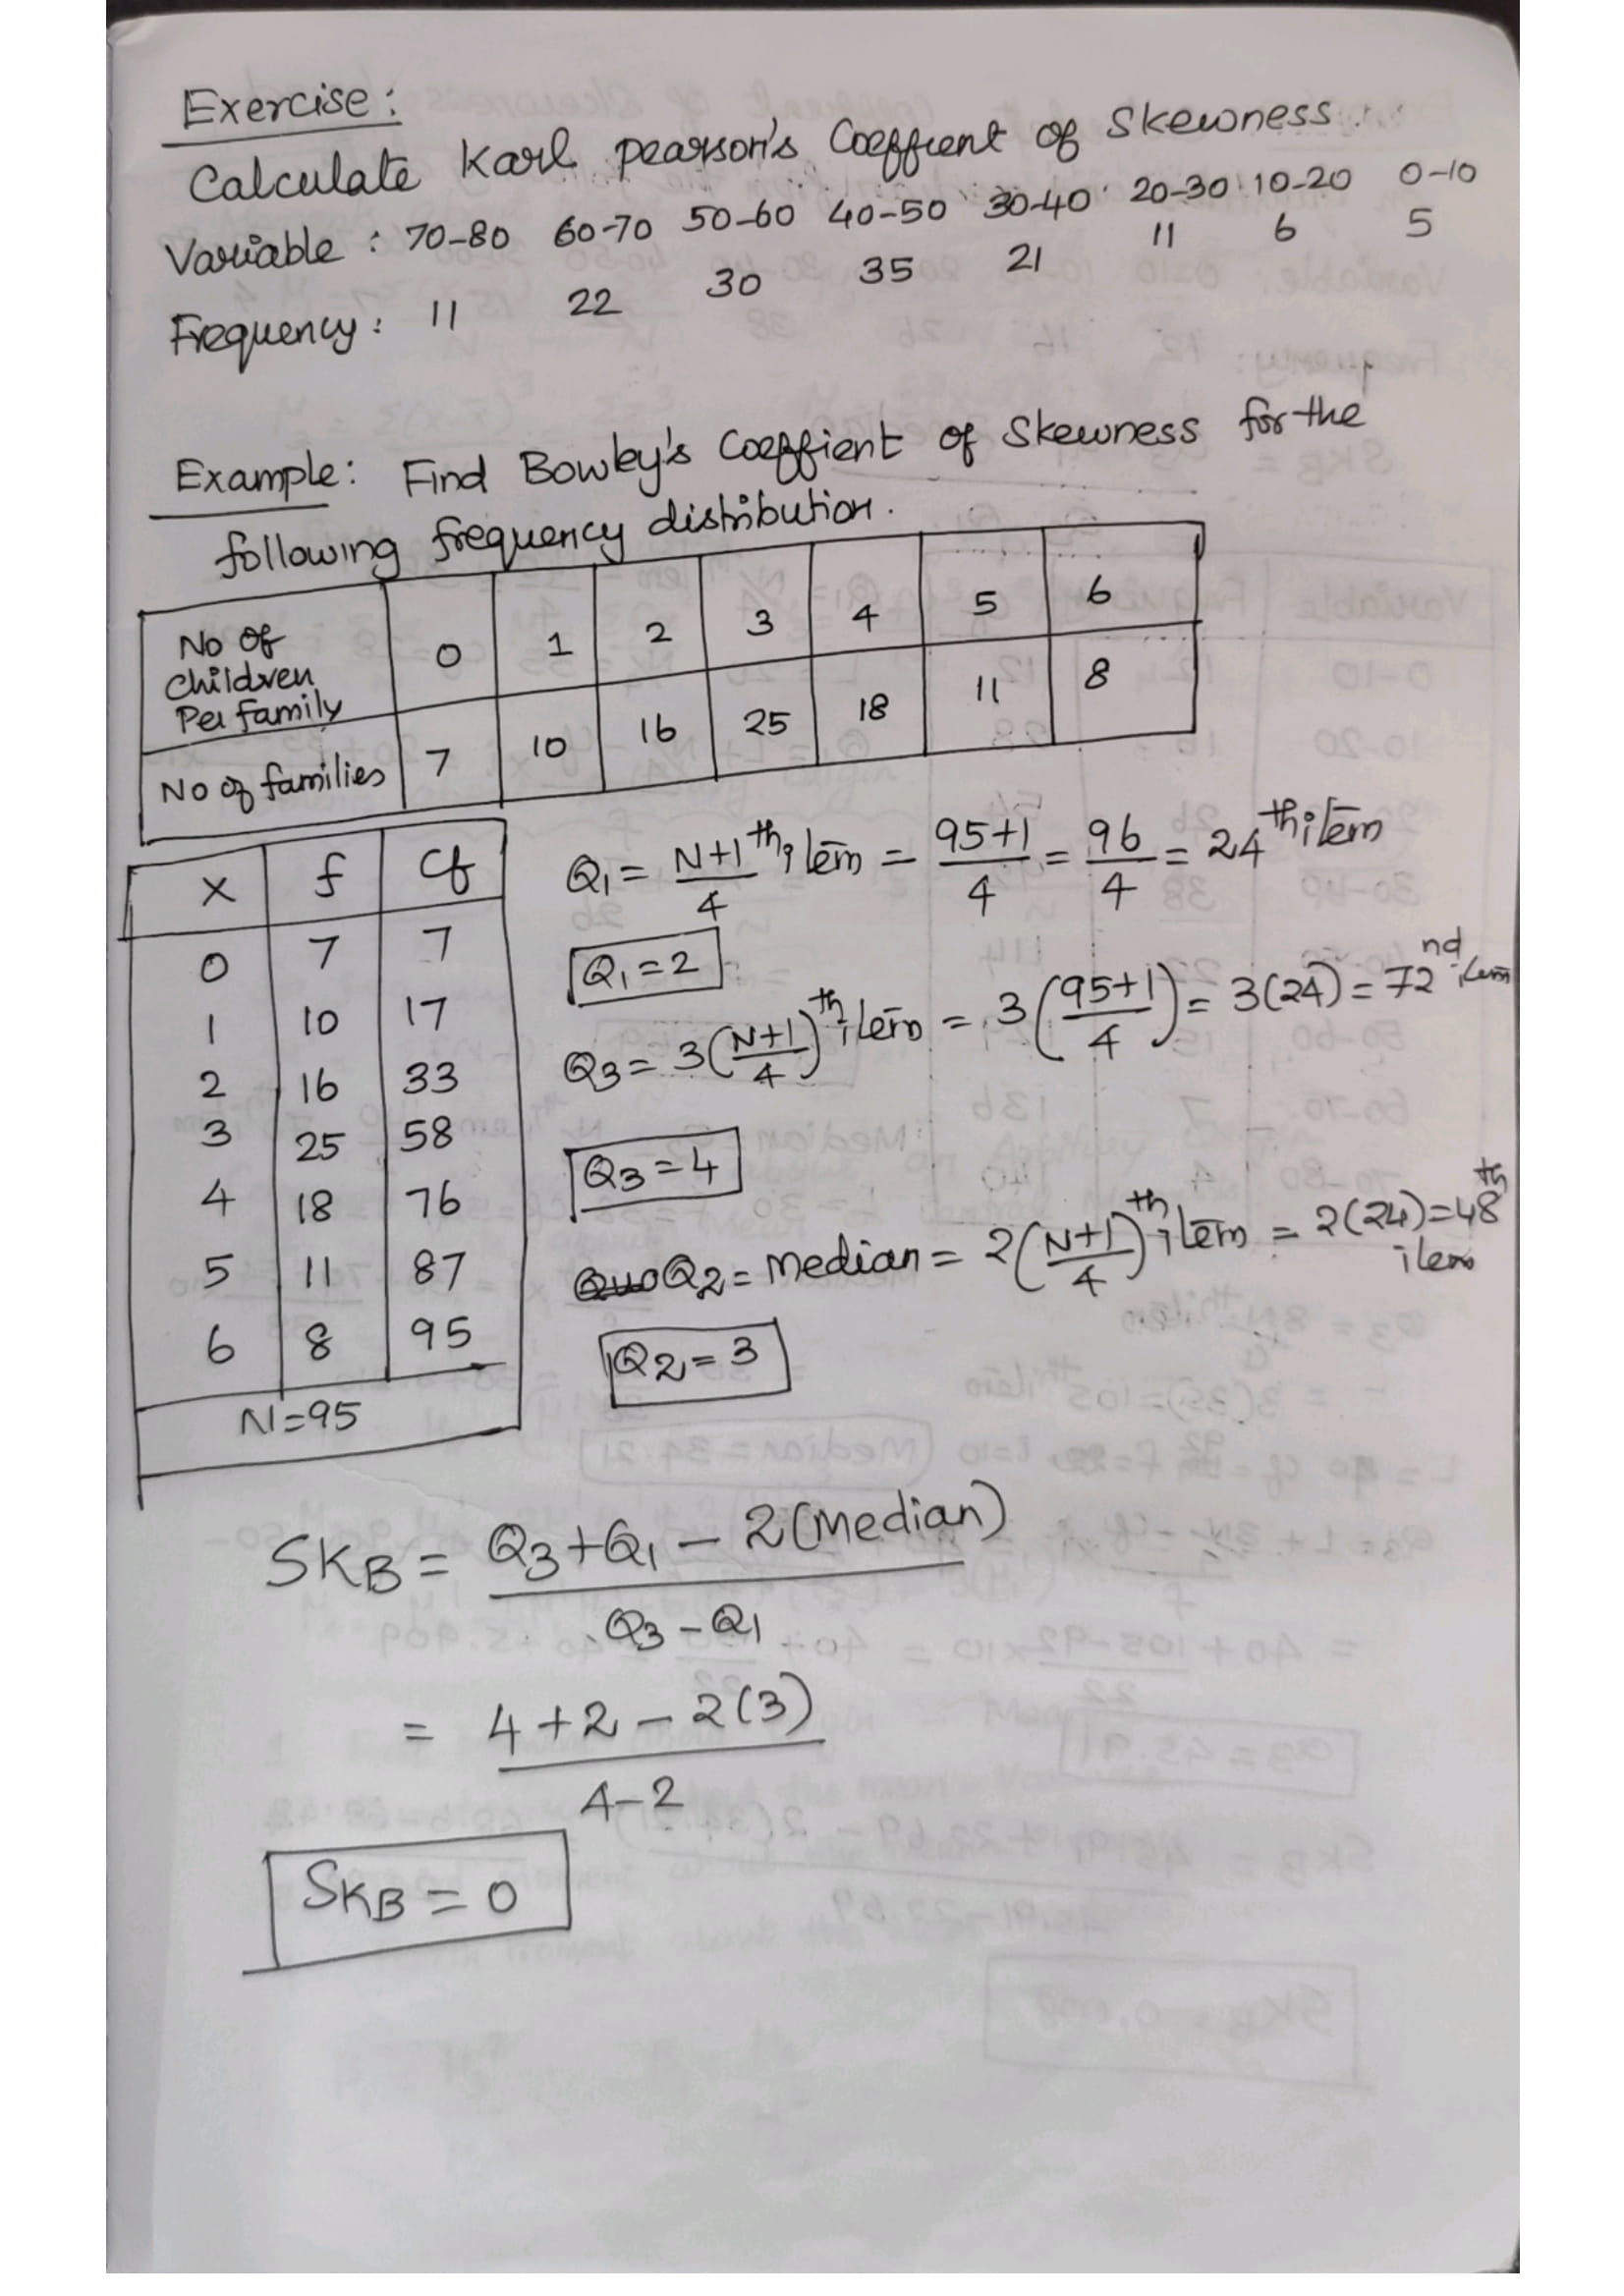 Exercise:
Calculate Karl pearson's Coeffient of Skewness.
Variable : 70-80 60-70 50-60 40-50 30-40 20-30 10-20 0-10
Frequency: 11 22 30 35 21 11 6 5
Example: Find Bowley's Coeffient of Skewness for the
following frequency distribution.
No of children Per family 0 1 2 3 4 5 6
No of families 7 10 16 25 18 11 8
x f cf
0 7 7
1 10 17
2 16 33
3 25 58
4 18 76
5 11 87
6 8 95
N=95
Q1 = N+1/4 th item = 95+1/4 = 96/4 = 24th item
Q1 = 2
Q3 = 3(N+1/4)th item = 3(95+1/4) = 3(24) = 72nd item
Q3 = 4
Q2 = Median = 2(N+1/4)th item = 2(24) = 48th item
Q2 = 3
SKB = Q3+Q1 - 2(Median) / Q3 - Q1
= 4+2-2(3) / 4-2
SKB = 0